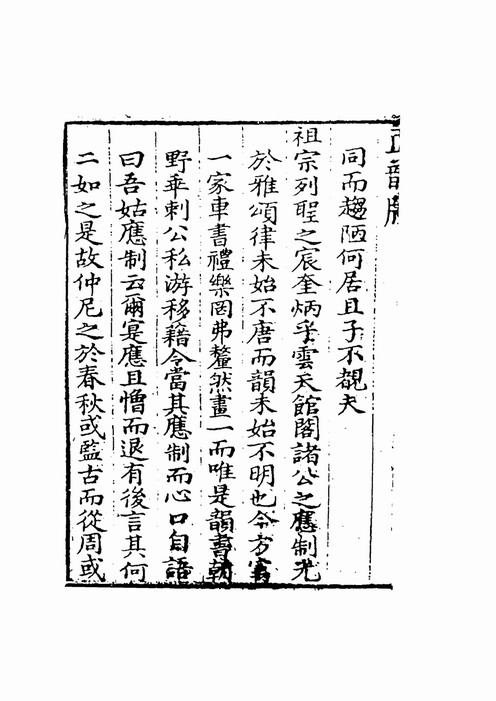 正韻牋
同而趨陋何居且子不覩夫
祖宗列聖之宸奎炳乎雲天館閣諸公之應制尤
於雅頌律未始不唐而韻未始不明也今方寓
一家車書禮樂罔弗釐然畫一而唯是韻書朝
野乖剌公私游移藉令當其應制而心口自語
曰吾姑應制云爾寔應且憎而退有後言其何
二如之是故仲尼之於春秋或監古而從周或